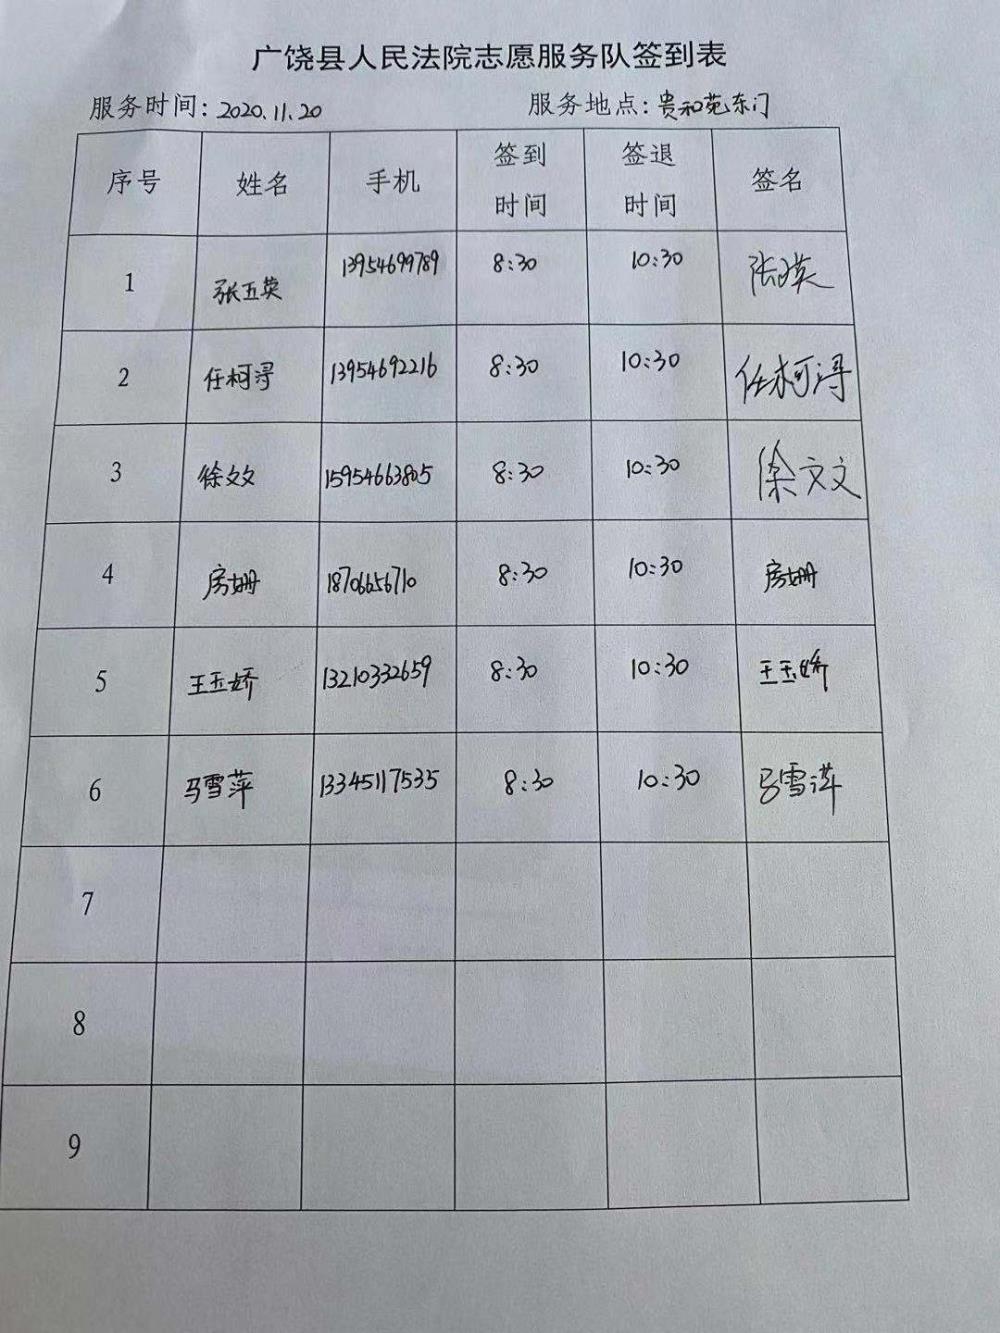 广饶县人民法院志愿服务队签到表
服务时间: 2020.11.20 服务地点: 贵和苑东门
序号 姓名 手机 签到时间 签退时间 签名
1 张五英 13954699789 8:30 10:30
2 任柯浔 13954692216 8:30 10:30 任柯浔
3 徐文文 15954663805 8:30 10:30 徐文文
4 房姗 18706656710 8:30 10:30 房姗
5 王玉娇 13210332659 8:30 10:30 王玉娇
6 马雪萍 13345117535 8:30 10:30 马雪萍
7
8
9